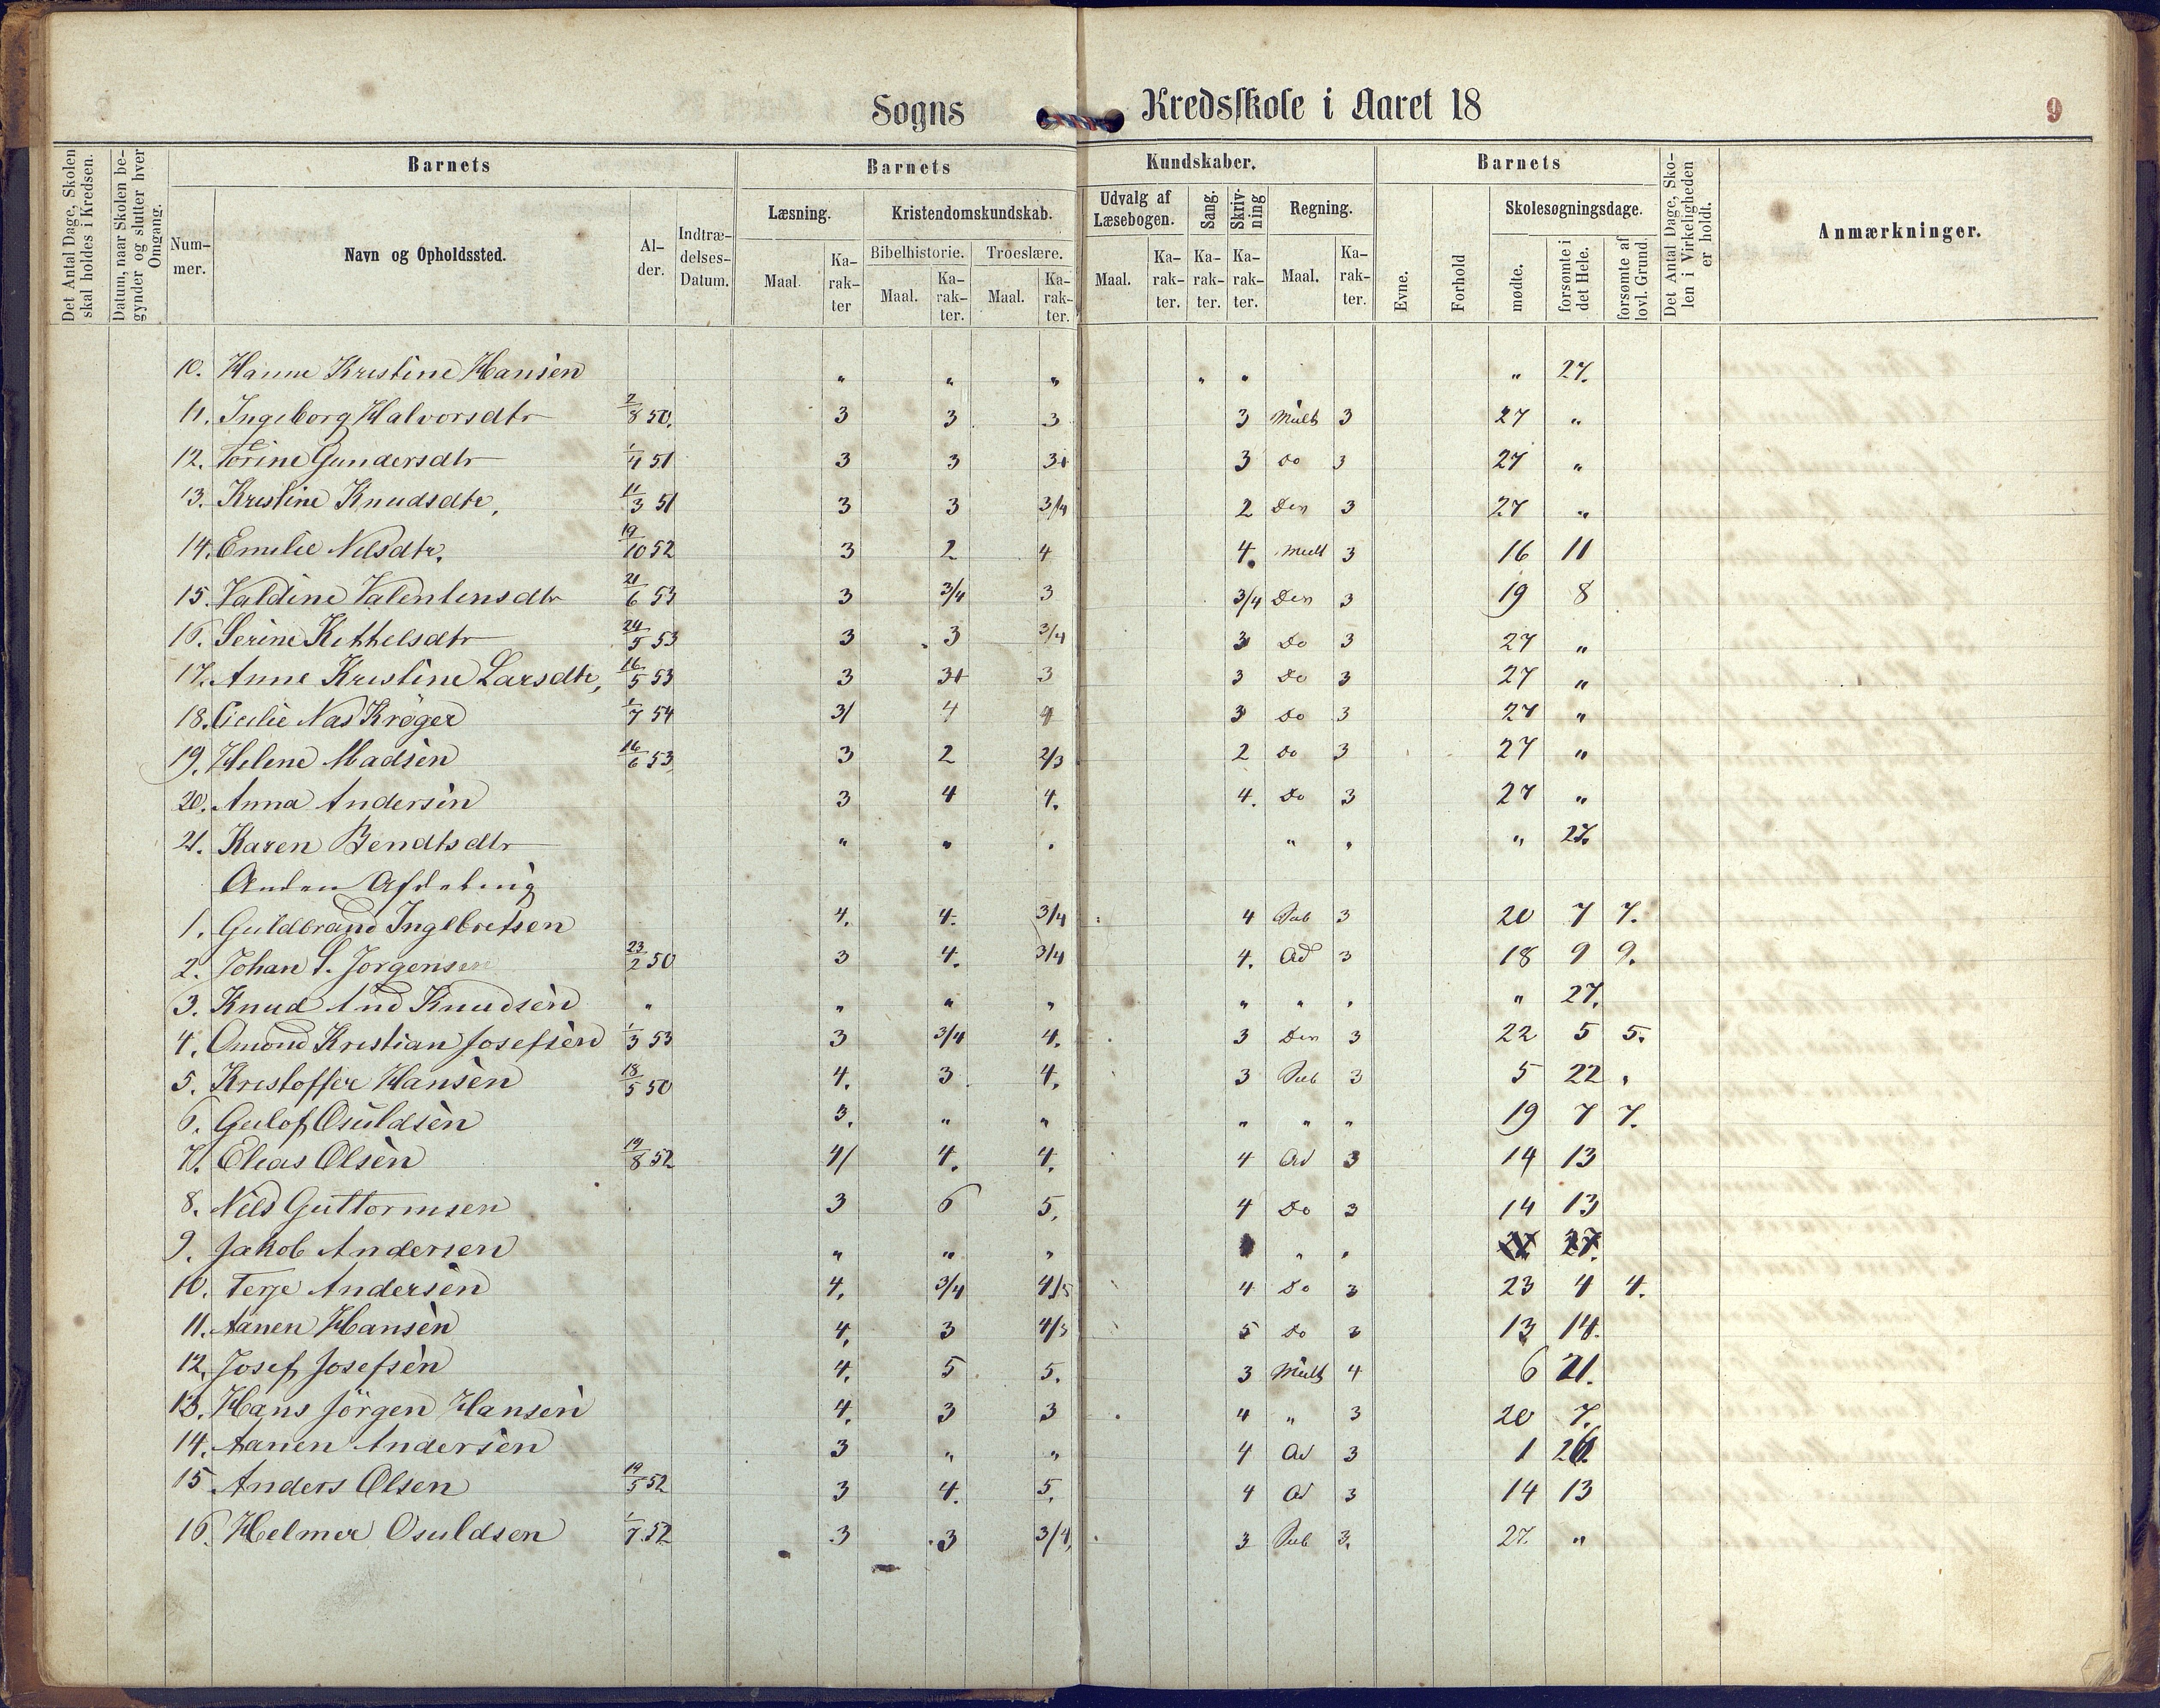 Sogns Kredsskole i Aaret 18
9
Det Antal Dage, Skolen skal holdes i Kredsen.
Datum, naar Skolen begynder og slutter hver Omgang.
Barnets
Nummer.
Navn og Opholdssted.
Alder.
Indtrædelses-Datum.
Barnets Kundskaber.
Læsning.
Maal.
Karakter
Kristendomskundskab.
Bibelhistorie.
Maal.
Karakter.
Troeslære.
Maal.
Karakter.
Udvalg af Læsebogen.
Maal.
Karakter.
Sang.
Karakter.
Skrivning
Karakter.
Regning.
Maal.
Karakter.
Barnets
Evne.
Forhold
Skolesøgningsdage.
mødte.
forsømte i det Hele.
forsømte af lovl. Grund.
Det Antal Dage, Skolen i Virkeligheden er holdt.
Anmærkninger.
10. Hanne Kristine Hansen " " " " " " 27.
11. Ingeborg Halvorsdtr 2/8 50. 3 3 3 3 Mult 3 27 "
12. Torine Gundersdtr 1/4 51 3 3 3+ 3 Do 3 27 "
13. Kristine Knudsdtr. 11/3 51 3 3 3/4 2 Den 3 27 "
14. Emilie Nilsdtr. 19/10 52 3 2 4 4. Mult 3 16 11
15. Valdine Valentinsdtr 21/6 53 3 3/4 3 3/4 Den 3 19 8
16. Serine Kittelsdtr 24/5 53 3 3 3/4 3 Do 3 27 "
17. Anne Kristine Larsdtr, 16/5 53 3 3+ 3 3 Do 3 27 "
18. Cicilie Nas Krøger 1/7 54 3/ 4 4 3 Do 3 27 "
19. Helene Madsen 16/6 53 3 2 2/3 2 Do 3 27 "
20. Anna Andersen 3 4 4. 4. Do 3 27 "
21. Karen Bendtsdtr " " " " " " 27.
Anden Afdeling
1. Guldbrand Inglbretsen 4. 4. 3/4 4 Sub 3 20 7 7.
2. Johan S. Jørgensen 23/2 50 3 4. 3/4 4. Ad 3 18 9 9.
3. Knud And Knudsen " " " " " " " " 27.
4. Omond Kristian Josefsen 1/3 53 3 3/4 4. 3 Den 3 22 5 5.
5. Kristoffer Hansen 18/5 50 4. 3 4. 3 Sub 3 5 22 "
6. Gulof Osuldsen 3. " " " " " 19 7 7.
7. Elias Olsen 19/8 52 4/ 4. 4. 4 Ad 3 14 13
8. Nils Guttormsen 3 6 5. 4 Do 3 14 13
9. Jakob Andersen " " " " " 27.
10. Terje Andersen 4. 3/4 4/5 4 Do 3 23 4 4.
11. Aanen Hansen 4. 3 4/3 5 Do 3 13 14.
12. Josef Josefsen 4. 5 5. 3 Mult 4 6 21.
13. Hans Jörgen Hansen 4. 3 3 4 " 3 20 7.
14. Aanen Andersen 3 " " 4 Ad 3 1 26
15 Anders Olsen 19/5 52 3 4. 5. 4 Ad 3 14 13
16. Helmer Osuldsen 1/7 52 3 3 3/4, 3 Sub 3. 27. "